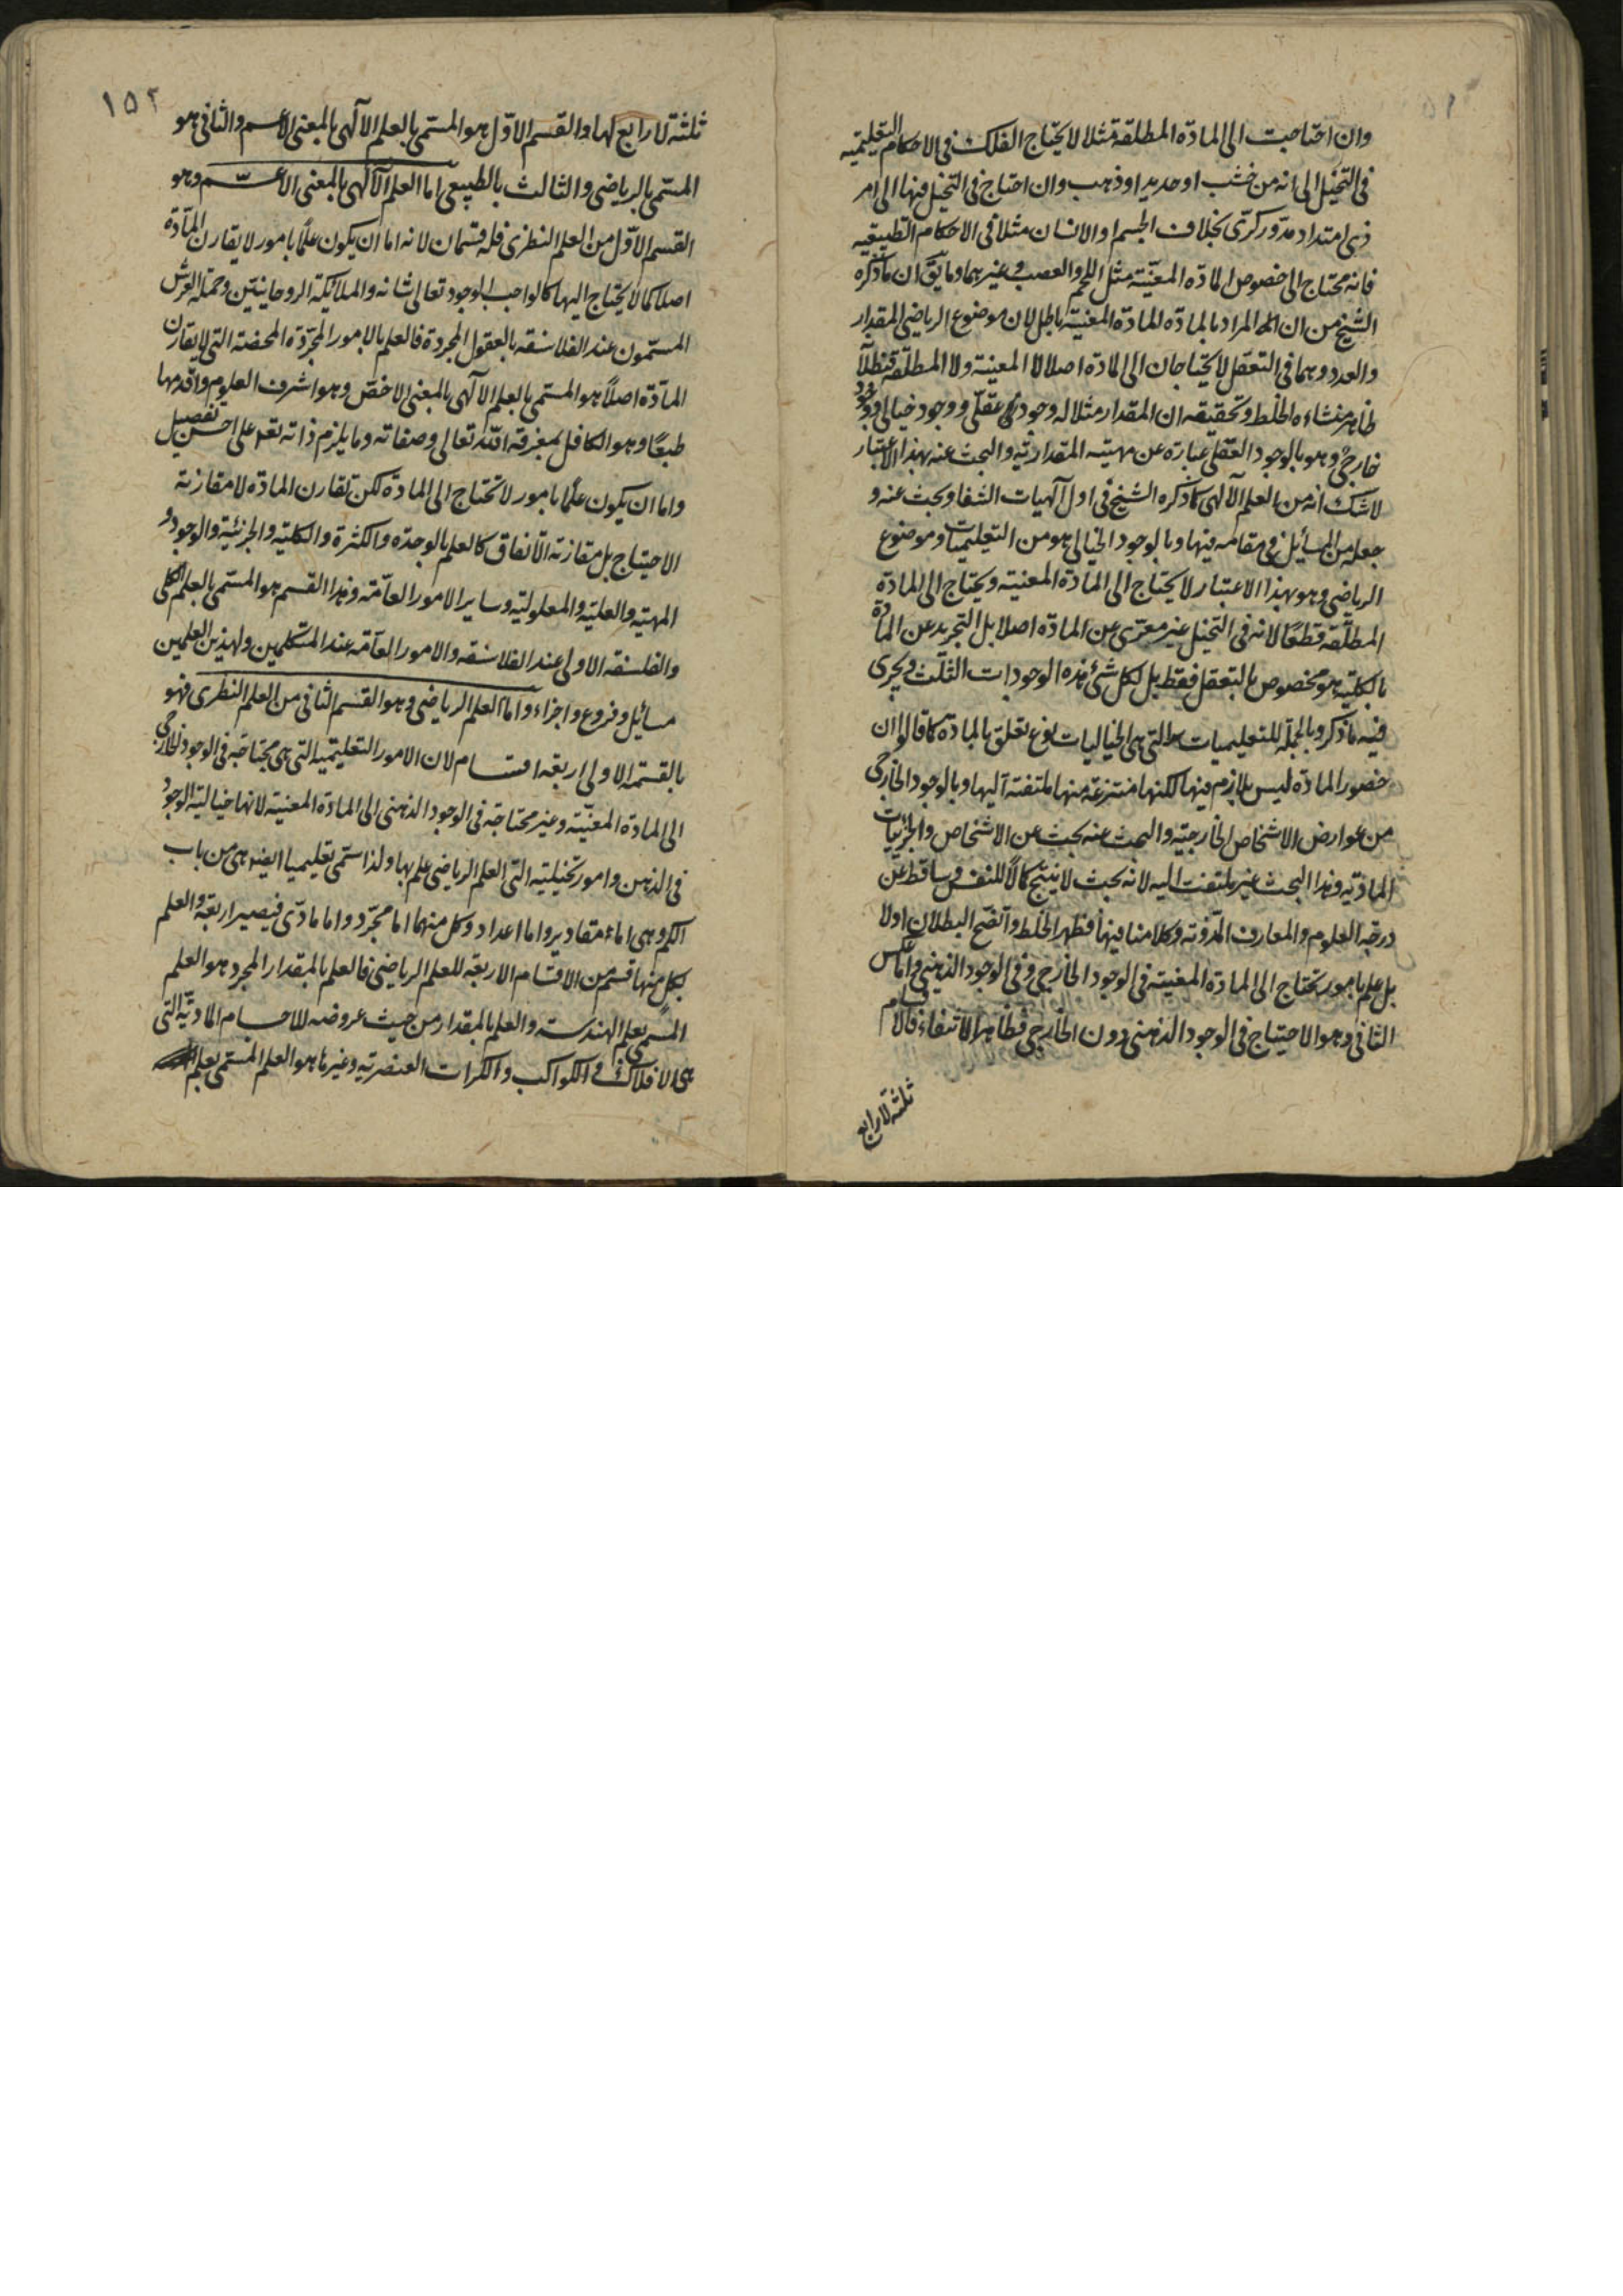 وان احتاجت الى المادّه المطلقة مثلا لا يحتاج الفلك فى الاحكام التعليميه
فى التخيل الى انه من خشب او حديد او ذهب وان احتاج فى التخيل فيها الى امر
ذى امتداد مدّور كرّى بخلاف الجسم او الانسان مثلا فى الاحكام الطبيعيه
فانه محتاج الى خصوص المادّه المعيّنة مثل اللحم والعصب وغيرهما وما يقّ ان ما ذكره
الشيخ من ان المراد بالمادّه المادّة المعينة باطل لان موضوع الرياضى المقدار
والعدد وهما فى التعقل لا يحتاجان الى المادّة اصلا لا المعينة ولا المطلقة فبطلاً
ظاهر منشاءه الخلط وتحقيقه ان المقدار مثلا له وجود عقلّى ووجود خيالى ووجود
خارجىّ وهو بالوجود العقلى عبارة عن مهيته المقدارية والبحث عنه بهذا الاعتبار
لا شك انه من العلم الآلهى كما ذكره الشيخ فى اول آلهيات الشفا وبحث عنه و
جعله من المسائل فى مقامه فيها وبالوجود الخيالى هو من التعليميات وموضوع
الرياضى وهو بهذا الاعتبار لا يحتاج الى المادّة المعينة ويحتاج الى المادّة
المطلّقة قطعًا لانه فى التخيل غير معرّى عن المادّه اصلا بل التجريد عن المادّة
بالكلية هو مخصوص بالتعقل فقط بل لكل شئ هذه الوجودات الثلث ويجرى
فيه ما ذكر وبالجملة للتعليميات التى هى الخياليات نوع تعلق بالمادّة كما قالوا ان
حضور المادّه ليس بلازم فيها لكنها منتزعة منها ملتفتة اليها وبالوجود الخارجى
من عوارض الاشخاص الخارجيّة والبحث عنه بحث عن الاشخاص والجزئيات
المادّيه وهذا البحث غير ملتفت اليه لانه بحث لا ينتج كمالاً للنفس وساقط عن
درجة العلوم والمعارف المدّونه وكلامنا فيها فظهر الخلط وآتضح البطلان اولا
بل علم بامور تحتاج الى المادّة المعينة فى الوجود الخارجى وفى الوجود الذهنى واما عكس
الثانى وهو الاحتياج فى الوجود الذهنى دون الخارجى فظاهر الانتفاء فالاقسام
ثلثة لا رابع
١٥٢
ثلثة لا رابع لها والقسم الاوّل هو المسمّى بالعلم الآلهى بالمعنى الاعم والثانى هو
المسمّى بالرياضى والثالث بالطبيعى اما العلم الآلهى بالمعنى الاعمّ وهو
القسم الاوّل من العلم النظرى فله قسمان لانه اما ان يكون علمًا بامور لا يقارن المادّة
اصلا كما لا يحتاج اليها كالواجب الوجود تعالى شانه والملائكة الروحانيتين وحملة العرش
المسمّون عند الفلاسفه بالعقول المجردة فالعلم بالامور المجرّدة المحضة التى لا يقارن
المادّة اصلاً هو المسمى بالعلم الآلهى بالمعنى الاخصّ وهو اشرف العلوم واقدمها
طبعًا وهو الكافل بمعرفة الله تعالى وصفاته وما يلزم ذاته تعم على احسن تفصيل
واما ان يكون علمًا بامور لا تحتاج الى المادّة لكن تقارن المادّة لا مقارنة
الاحتياج بل مقارنة الاتّفاق كالعلم بالوحدّه والكثرة والكلية والجزئية والوجود و
المهيّة والعلية والمعلولية وساير الامور العآمّه وهذا القسم هو المسمى بالعلم الكلى
والفلسفة الاولى عند الفلاسفه والامور العآمّه عند المتكلمين ولهذين العلمين
مسائل وفروع واجزاء واما العلم الرياضى وهو القسم الثانى من العلم النظرى فهو
بالقسمة الاولى اربعة اقسام لان الامور التعليمية التى هى محتاجة فى الوجود الخارجى
الى المادّة المعيّنة وغير محتاجة فى الوجود الذهنى الى المادّة المعينة لانها خيالية الوجود
فى الذهن وامور تخيلية التى العلم الرياضى علم بها ولذا سمّى تعليميا ايضا هى من باب
الكم وهى اما مقادير واما اعداد وكل منهما اما مجرّد واما مادّى فيصير اربعة والعلم
بكل منها قسم من الاقسام الاربعة للعلم الرياضى فالعلم بالمقدار المجرد هو العلم
المسمى بعلم الهندسة والعلم بالمقدار من حيث عروضه للاجسام المادّيّة التى
هى الافلاك والكواكب والكرات العنصرية وغيرها هو العلم المسمى بعلم